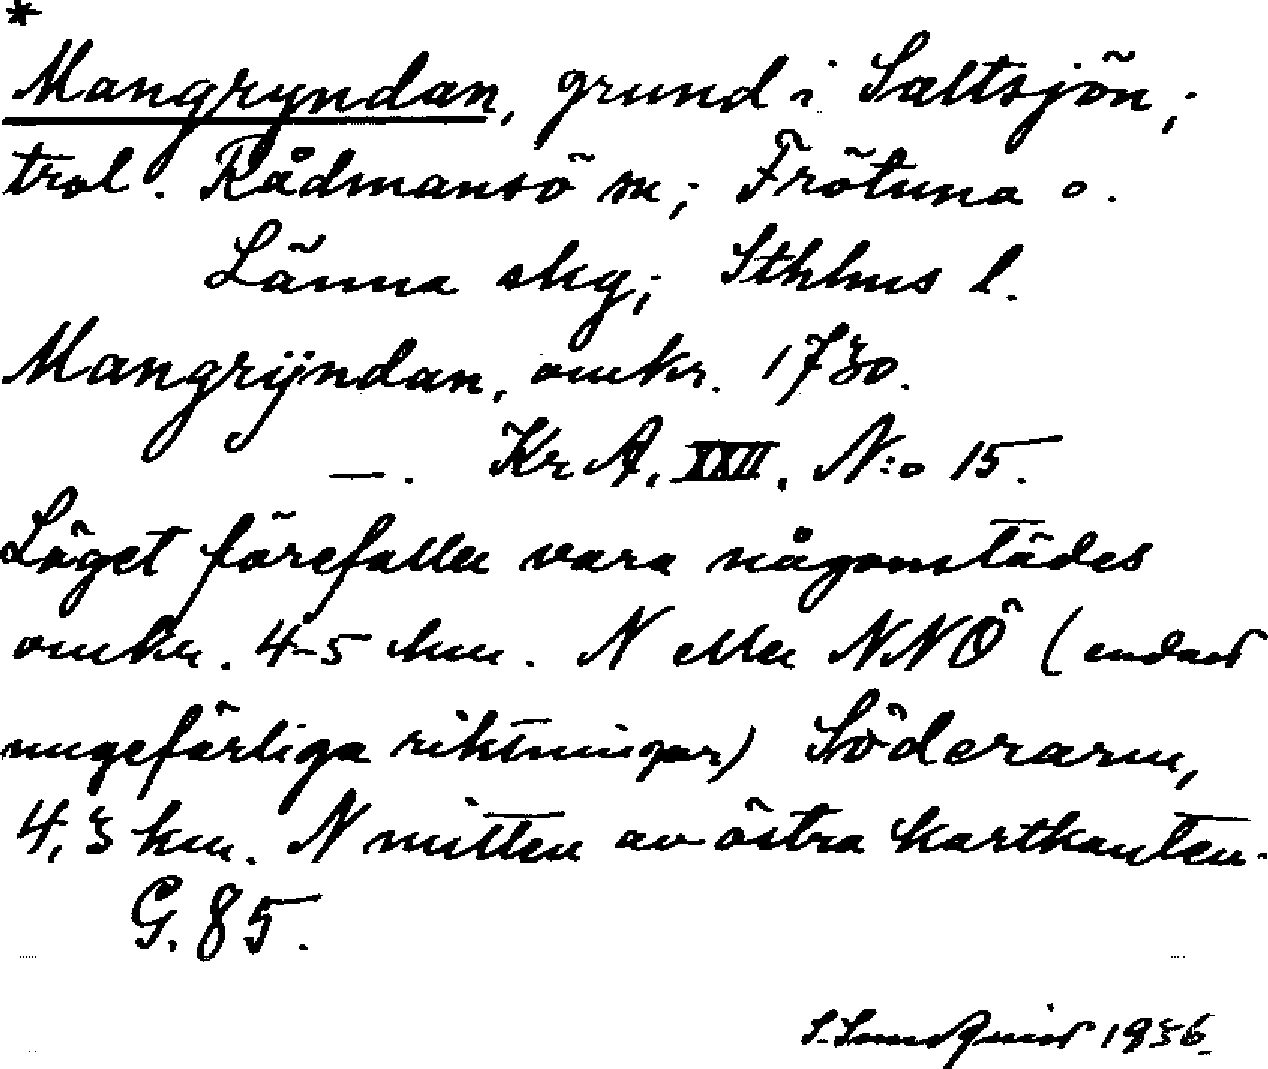 *
Mangryndan, grund i Saltsjön;
trol. Rådmansö sn; Frötuna o.
Länna skg; Sthlms l.
Mangrÿndan, omkr. 1730.
—. Kr A. XXII. N:o 15.
Läget förefaller vara någonstädes
omkr. 4-5 km. N eller NNÖ (endast
ungefärliga riktningar) Söderarm,
4,3 km. N mitten av östra kartkanten.
G. 85.
1936.